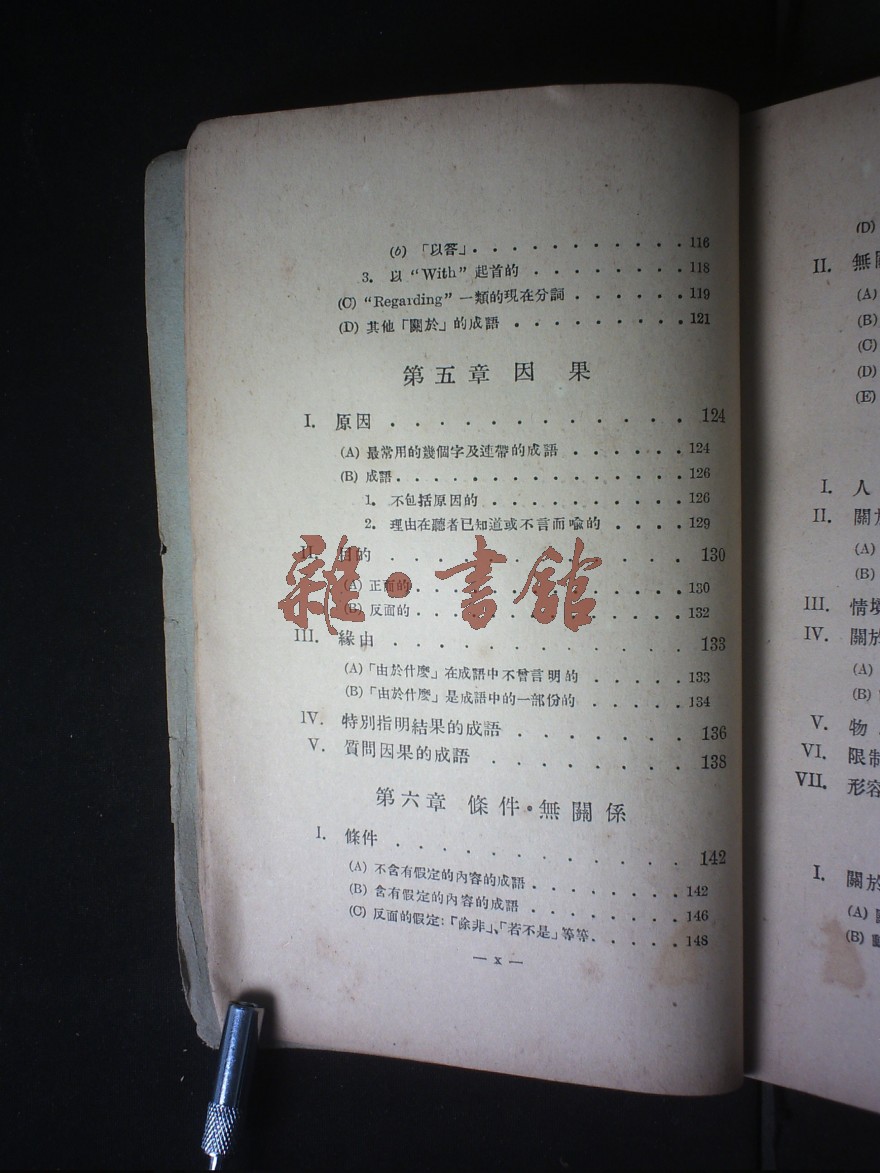 (b) 「以答」. . . . . . . . . . . 116
3. 以 "With" 起首的 . . . . . . . . . 118
(C) "Regarding" 一類的現在分詞 . . . . . . 119
(D) 其他「關於」的成語 . . . . . . . . . 121
第五章 因 果
I. 原因 . . . . . . . . . . . . 124
(A) 最常用的幾個字及連帶的成語 . . . . . . 124
(B) 成語. . . . . . . . . . . . . . . 126
1. 不包括原因的 . . . . . . . . . . 126
2. 理由在聽者已知道或不言而喻的 . . . . 129
II. 目的 . . . . . . . . . . . . 130
(A) 正面的. . . . . . . . . . . . . . 130
(B) 反面的 . . . . . . . . . . . . . . 132
III. 緣由 . . . . . . . . . . . . 133
(A)「由於什麼」在成語中不曾言明的 . . . . . 133
(B)「由於什麼」是成語中的一部份的 . . . . . 134
IV. 特別指明結果的成語 . . . . . . . 136
V. 質問因果的成語 . . . . . . . . 138
第六章 條件·無關係
I. 條件 . . . . . . . . . . . . 142
(A) 不含有假定的內容的成語. . . . . . . . 142
(B) 含有假定的內容的成語 . . . . . . . . 146
(C) 反面的假定:「除非」、「若不是」等等. . . . . 148
— x —
雜·書館
(D)
II. 無關
(A)
(B)
(C)
(D)
(E)
I. 人
II. 關於
(A)
(B)
III. 情境
IV. 關於
(A)
(B)
V. 物
VI. 限制
VII. 形容
I. 關於
(A)
(B)